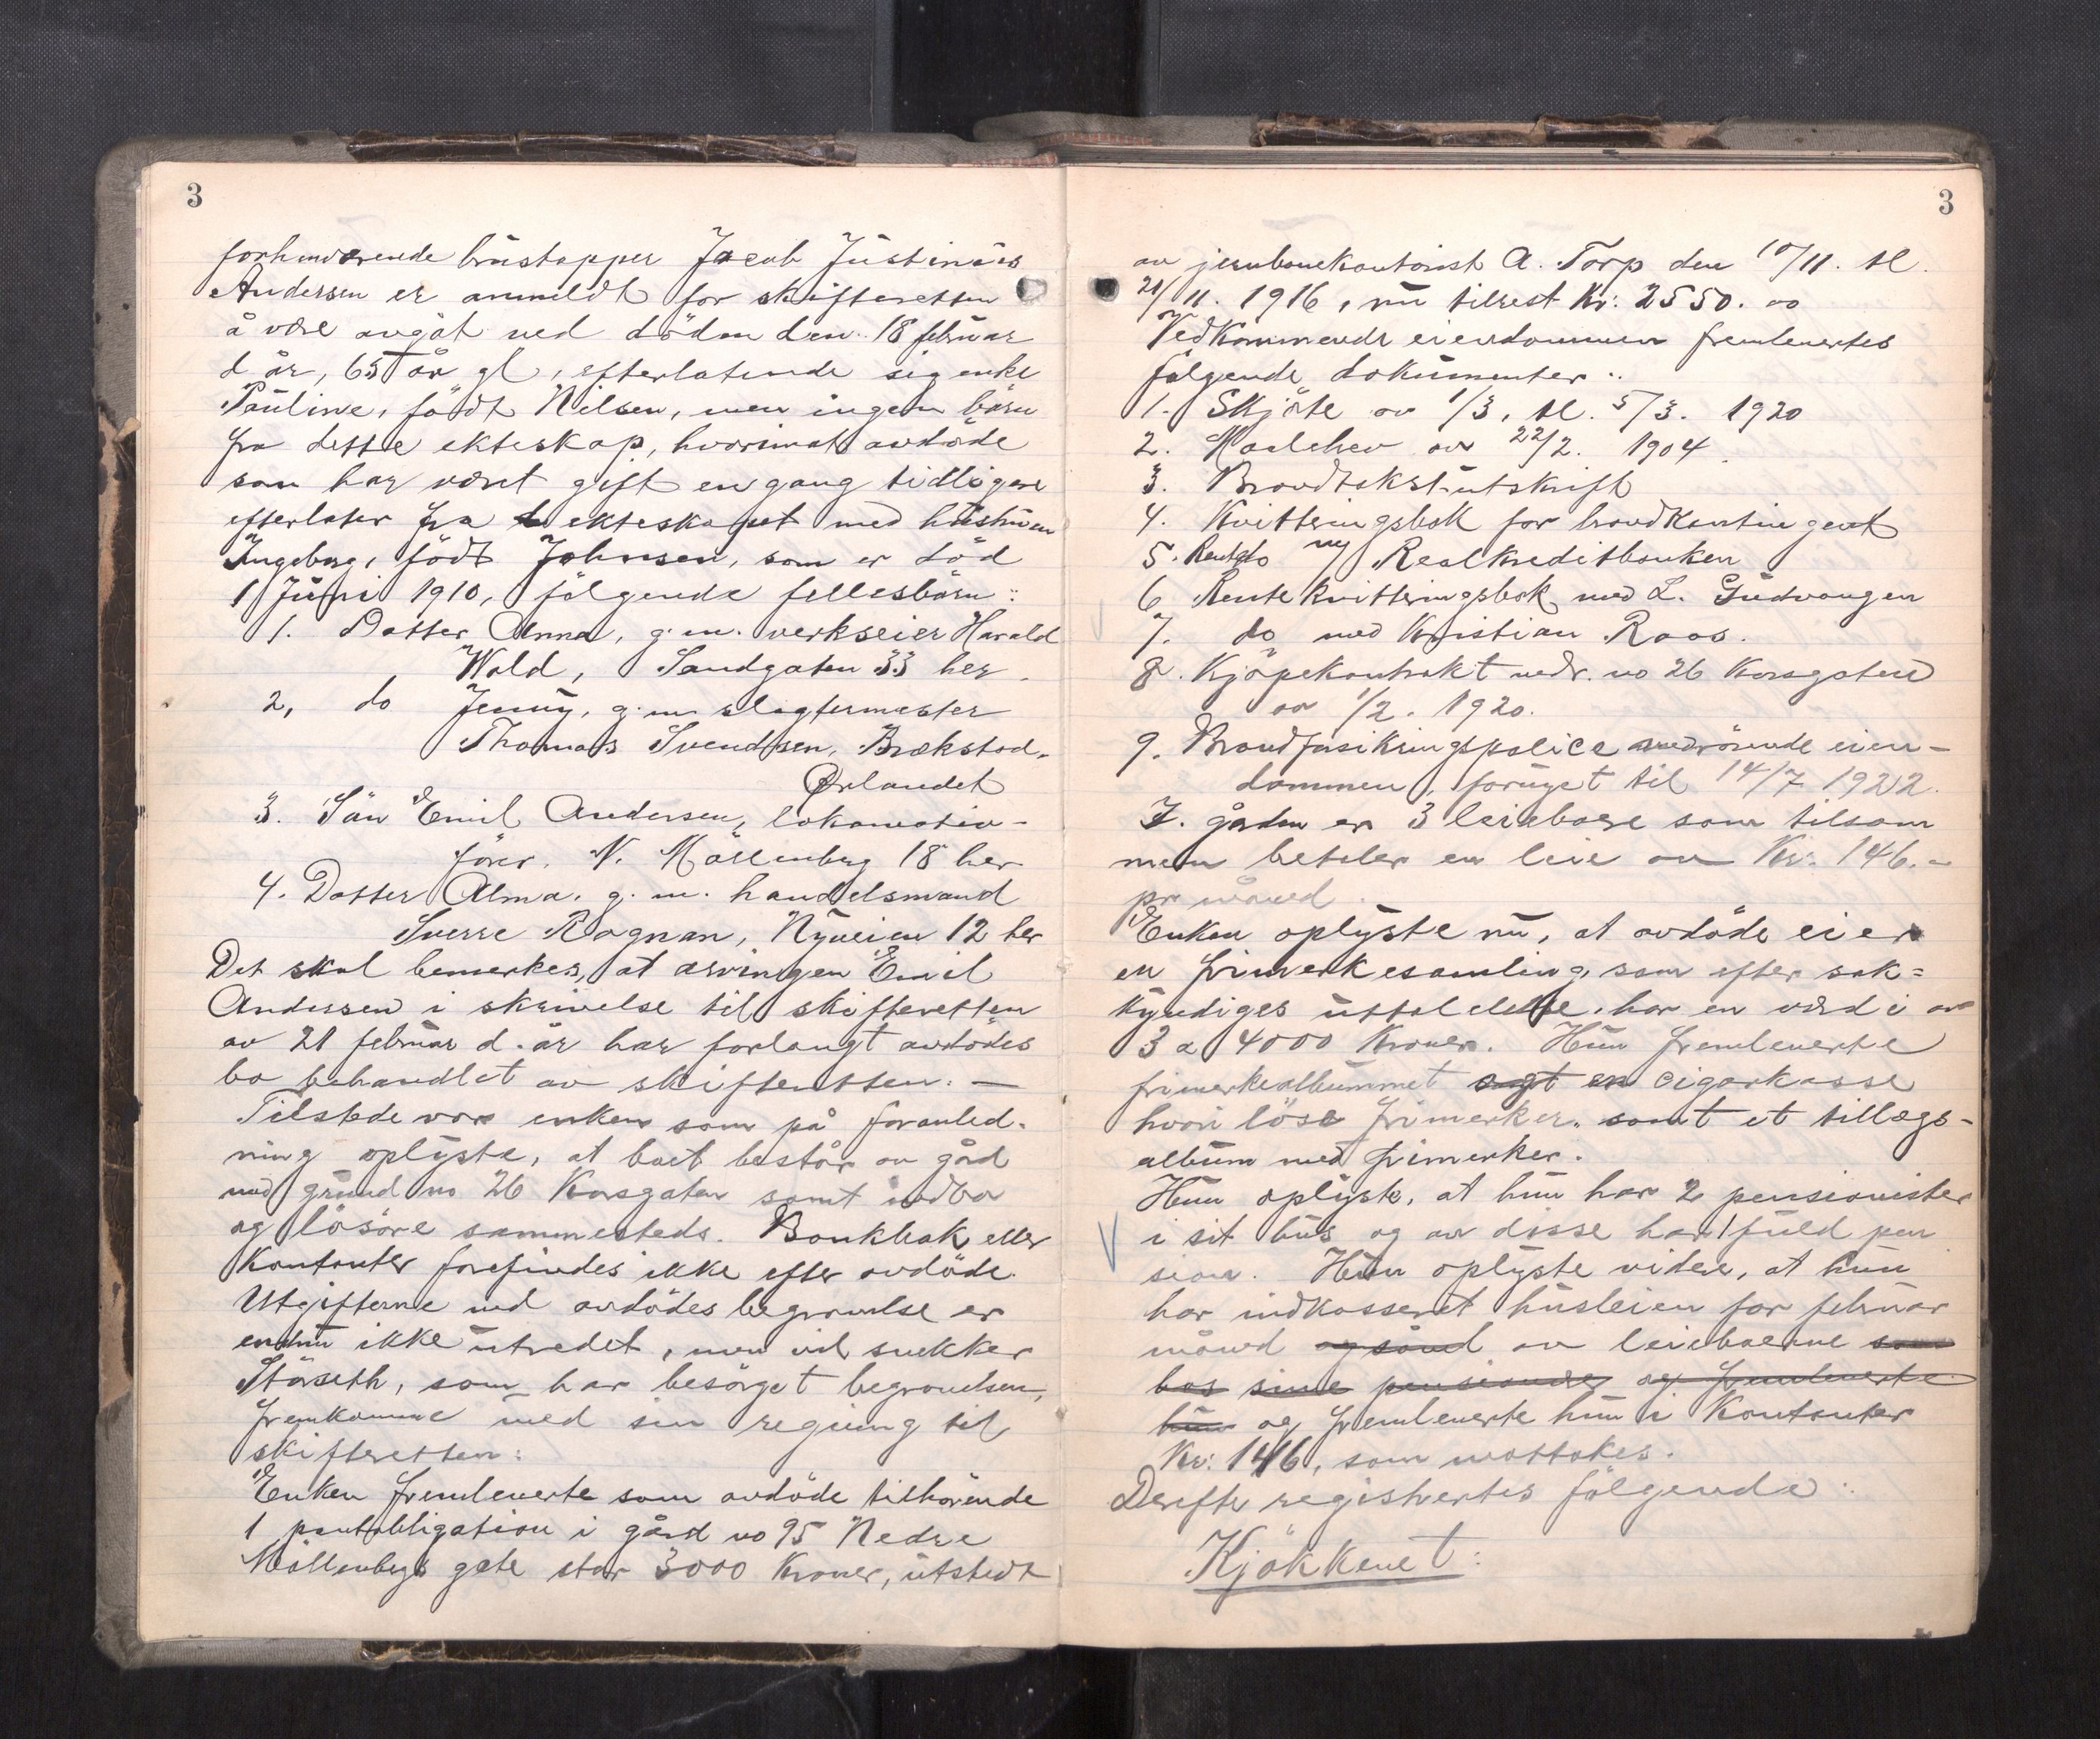 3
forhenværende brustapper Jacob Justinius
Andersen er anmeldt for skifteretten
å være avgåt ved döden den 18 februar
d år, 65 år gl, efterlatende sig enke
Pauline, födt Nilsen, men ingen börn
fra dette ekteskap, hvorimot avdöde
som har været gift en gang tidligere
efterlater fra ekteskapet med hustruen
Ingeborg, födt Johnsen, som er död
1 Juni 1910, fölgende fellesbörn:
1. Datter Anna, g.m. verkseier Harald
Wold, Sandgaten 33 her.
2, do Jenny, g.m. slagtermester
Thomas Svendsen, Brekstad,
Ørlandet
3. Sön Emil Andersen, lokomotiv-
förer, N. Möllenberg 18 her
4. Datter Alma, g.m. handelsmand
Sverre Rognan, Nyveien 12 her
Det skal bemerkes, at arvingen Emil
Andersen i skrivelse til skifteretten
av 21 februar d. år har forlangt avdödes
bo behandlet av skifteretten. —
Tilstede var enken som på foranled-
ning oplyste, at boet består av gård
med grund no 26 Korsgaten samt indbo
og lösöre sammesteds. Bankbok eller
Kontanter forefindes ikke efter avdöde.
Utgifterne ved avdödes begravelse er
endnu ikke utredet, men vil snekker
Störseth, som har besörget begravelsen,
fremkomme med sin regning til
skifteretten:
Enken fremleverte som avdöde tilhörende
1 pantobligation i gård no 95 Nedre
Möllenbergs gate stor 3000 Kroner, utstedt
3
av jernbanekontorist A. Torp den 10/11. tl.
21/11. 1916, nu tilrest Kr: 2550.00
Vedkommende eiendommen fremlevertes
fölgende dokumenter:
1. Skjöte av 1/3, tl. 5/3. 1920
2. Maalebrev av 22/2. 1904.
3. Brandtakst-utskrift
4. Kvitteringsbok for brandkontingent
5. Rentedo m/ Realkreditbanken
6 Rente kvitteringsbok med L. Gudvangen
7. do med Kristian Roos.
8. Kjöpekontrakt vedr. no 26 Korsgaten
av 1/2. 1920.
9. Brandforsikringspolice vedrörende eien-
dommen, fornyet til 14/7 1922.
I. gården er 3 leieboere som tilsam
men betaler en leie av Kr: 146.-
pr måned.
Enken oplyste nu, at avdöde eier
en frimerkesamling, som efter sak=
kyndiges uttalelse, har en værdi av
3 a 4000 Kroner. Hun fremleverte
frimerkealbummet sagt en cigarkasse
hvori löse frimerker, samt et tillægs-
album med frimerker.
Hun oplyste, at hun har 2 pensionister
i sit hus og av disse har 1 fuld pen
sion. Hun oplyste videre, at hun
har indkasseret husleien for februar
måned og sånd av leieboerne som
bos sine pensioner og fremleverte
hun og fremleverte hun i Kontanter
Kr: 146, som mottokes.
Derefter registrertes fölgende:
Kjökkenet: